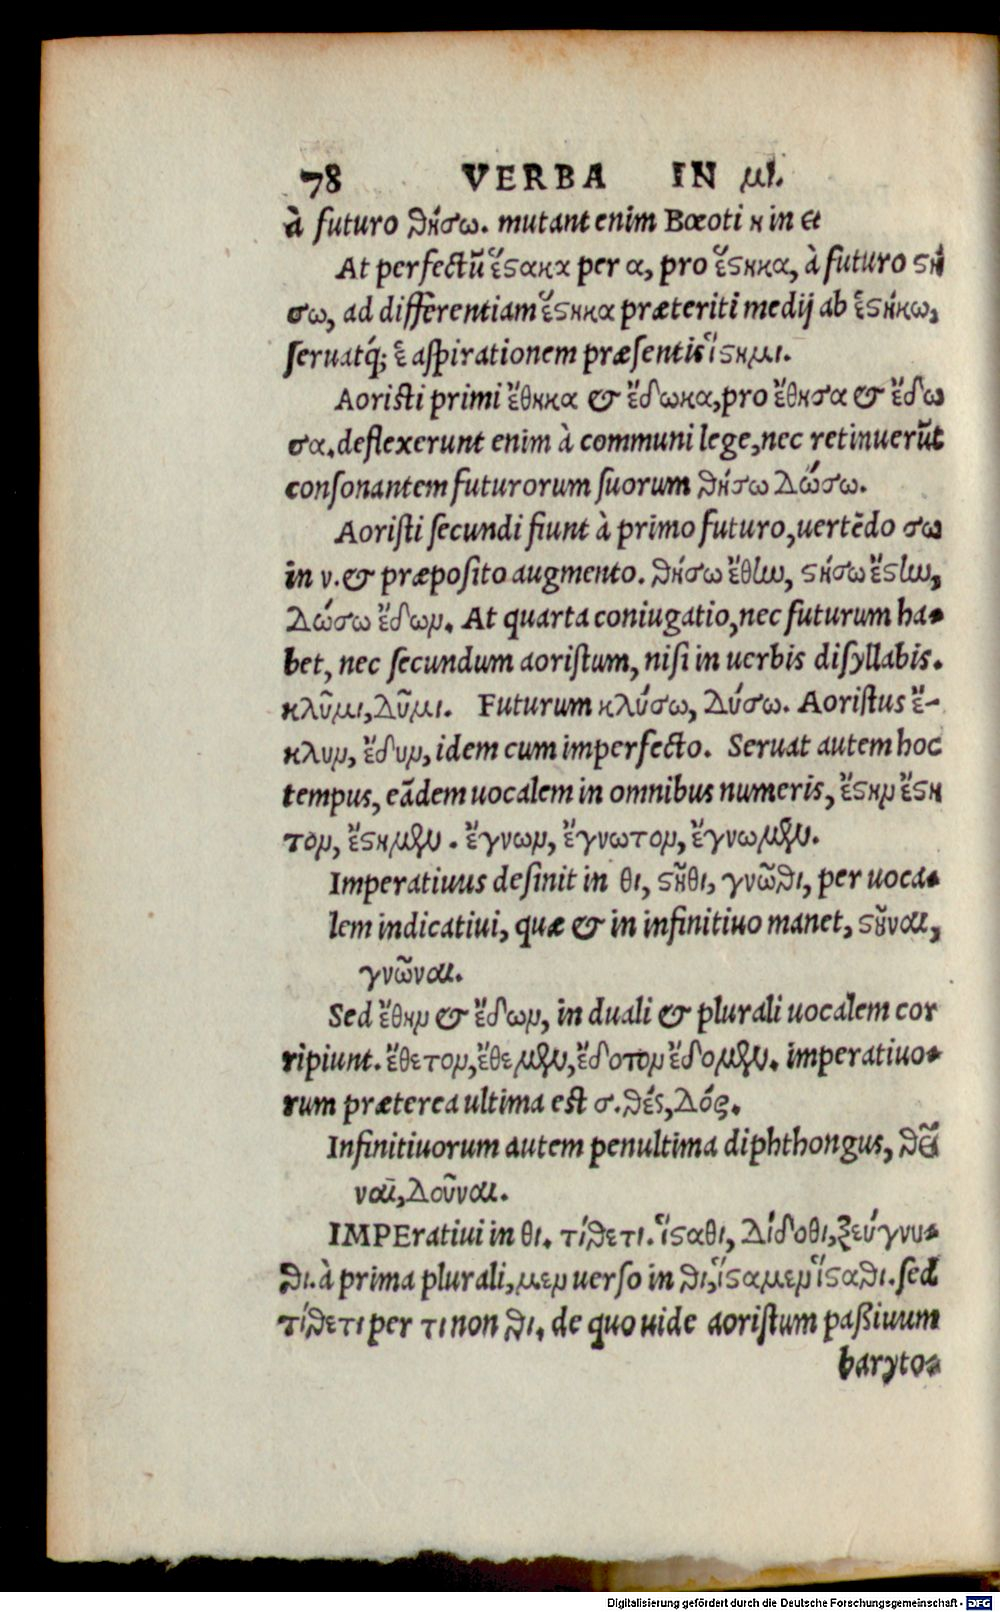 78 VERBA IN μι.
à futuro θήσω. mutant enim Bœoti η in ει
At perfectũ ἕστακα per α, pro ἕστηκα, à futuro στή
σω, ad differentiam ἕστηκα præteriti medij ab ἑστήκω,
seruatq́; ἑ aspirationem præsentis ἵστημι.
Aoristi primi ἔθηκα & ἔδωκα, pro ἔθησα & ἔδω
σα. deflexerunt enim à communi lege, nec retinuerũt
consonantem futurorum suorum θήσω δώσω.
Aoristi secundi fiunt à primo futuro, uertẽdo σω
in ν. & præposito augmento. θήσω ἔθην, στήσω ἔστην,
δώσω ἔδων. At quarta coniugatio, nec futurum ha-
bet, nec secundum aoristum, nisi in uerbis disyllabis.
κλῦμι, δῦμι. Futurum κλύσω, δύσω. Aoristus ἔ-
κλυν, ἔδυν, idem cum imperfecto. Seruat autem hoc
tempus, eãdem uocalem in omnibus numeris, ἔστην ἔστη
τον, ἔστημεν. ἔγνων, ἔγνωτον, ἔγνωμεν.
Imperatiuus desinit in θι, στῆθι, γνῶθι, per uoca-
lem indicatiui, quæ & in infinitiuo manet, στῆναι,
γνῶναι.
Sed ἔθην & ἔδων, in duali & plurali uocalem cor
ripiunt. ἔθετον, ἔθεμεν, ἔδοτον ἔδομεν. imperatiuo-
rum præterea ultima est σ. θές, δός.
Infinitiuorum autem penultima diphthongus, θεῖ
ναι, δοῦναι.
IMPEratiui in θι. τίθετι. ἵσταθι, δίδοθι, ζεύγνυ-
θι. à prima plurali, μεν uerso in θι, ἵσταμεν ἵσταθι. sed
τίθετι per τι non θι. de quo uide aoristum paßiuum
baryto-
Digitalisierung gefördert durch die Deutsche Forschungsgemeinschaft - DFG